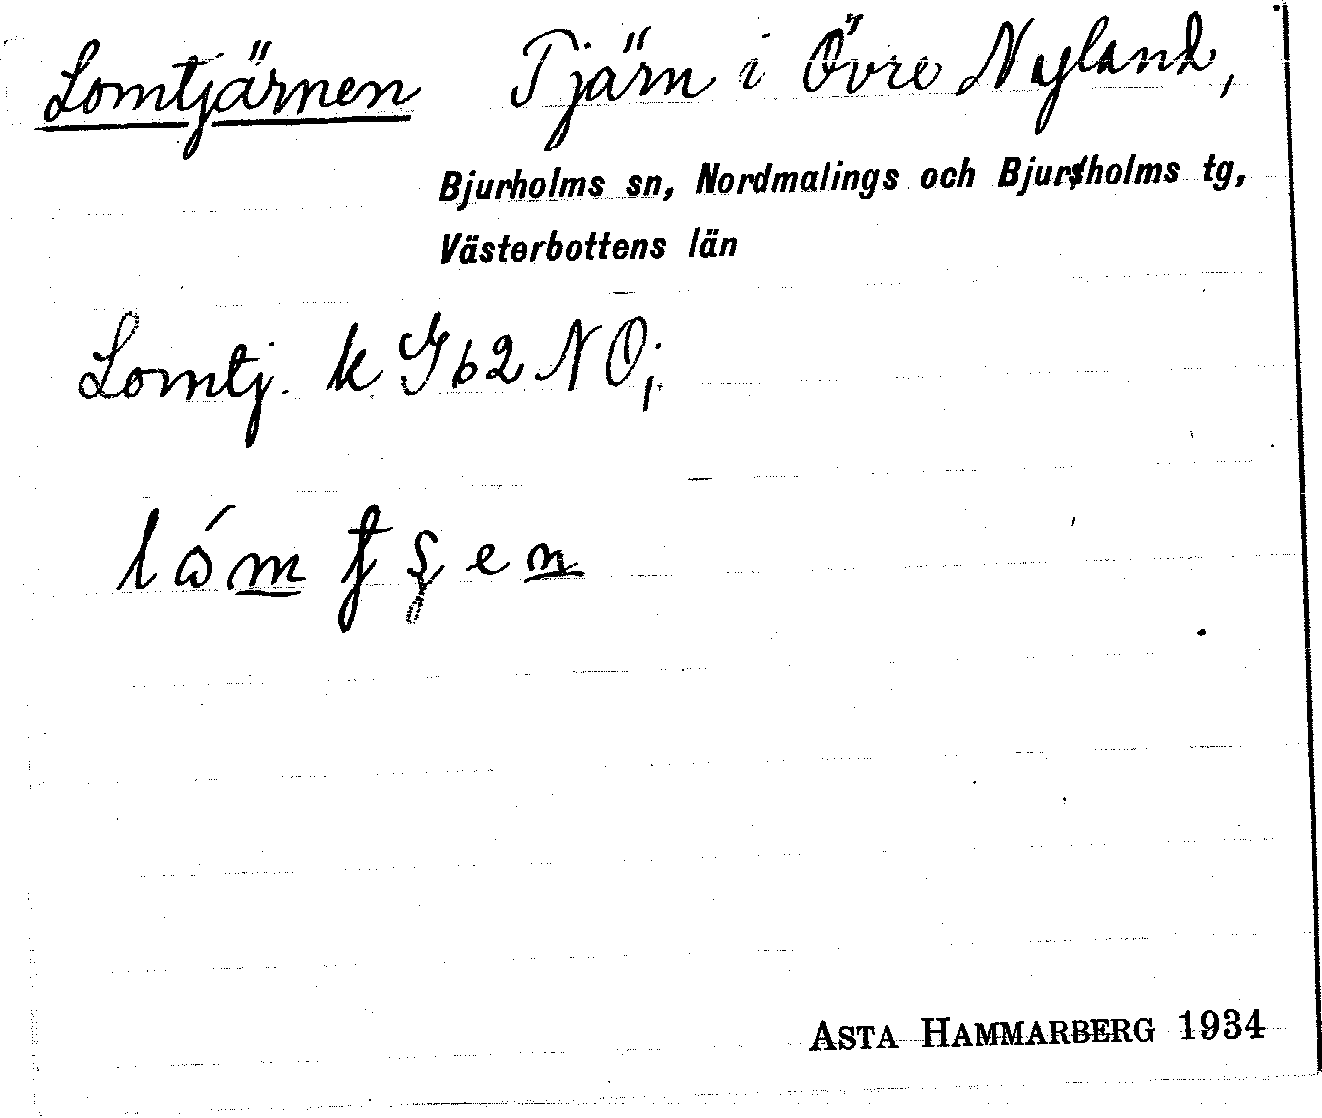 Lomtjärnen Tjärn i Övre Nyland,
Bjurholms sn, Nordmalings och Bjurholms tg,
Västerbottens län
Lomtj. k G62 NO;
ASTA HAMMARBERG 1934